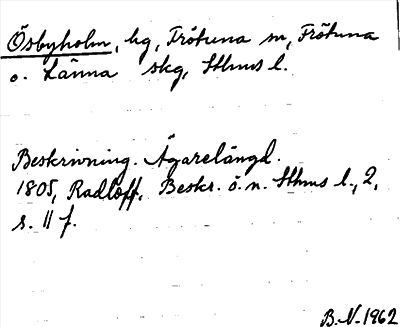 Ösbyholm, hg, Frötuna sn, Frötuna
o. Länna skg, Sthms l.
Beskrivning. Ägarelängd.
1805, Radloff, Beskr. ö. n. Sthms l., 2,
s. 11 f.
B.N. 1962